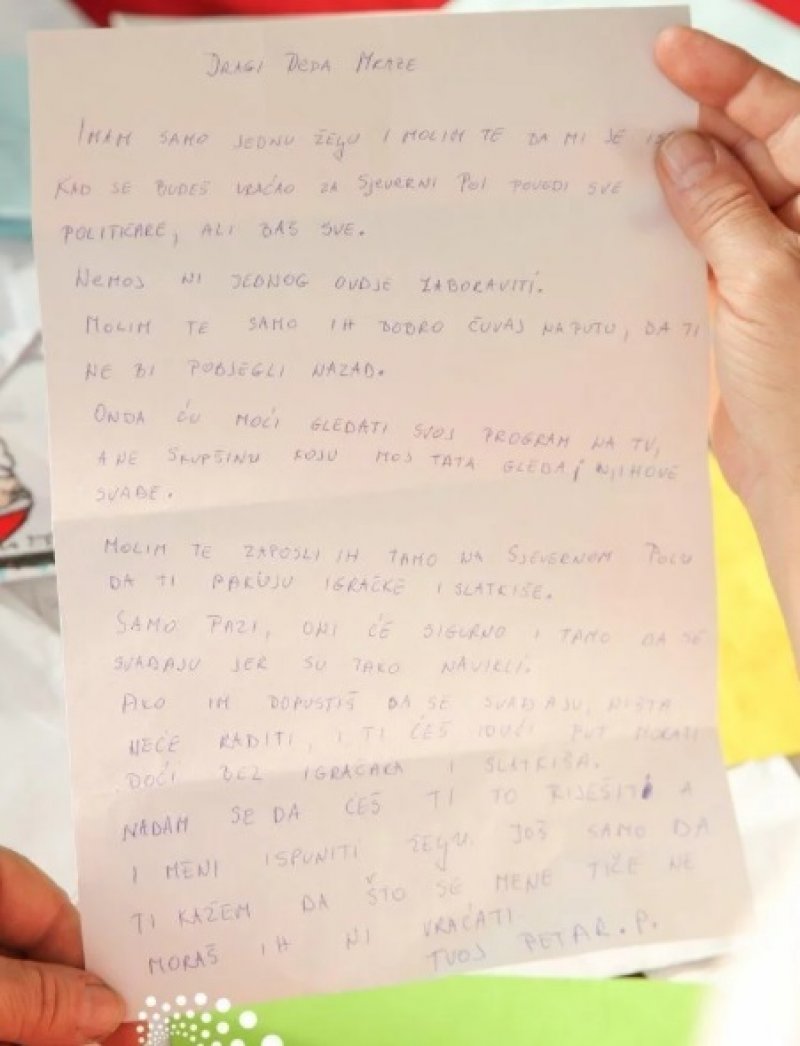 DRAGI DEDA MRAZE
IMAM SAMO JEDNU ŽELJU I MOLIM TE DA MI JE
KAD SE BUDEŠ VRAĆAO ZA SJEVERNI POL POVEDI SVE
POLITIČARE, ALI BAŠ SVE.
NEMOJ NI JEDNOG OVDJE ZABORAVITI.
MOLIM TE SAMO IH DOBRO ČUVAJ NA PUTU, DA TI
NE BI POBJEGLI NAZAD.
ONDA ĆU MOĆI GLEDATI SVOJ PROGRAM NA TV,
A NE SKUPŠTINU KOJU MOJ TATA GLEDA, I NJIHOVE
SVAĐE.
MOLIM TE ZAPOSLI IH TAMO NA SJEVERNOM POLU
DA TI PAKUJU IGRAČKE I SLATKIŠE.
SAMO PAZI, ONI ĆE SIGURNO I TAMO DA SE
SVAĐAJU JER SU TAKO NAVIKLI.
AKO IM DOPUSTIŠ DA SE SVAĐAJU, NIŠTA
NEĆE RADITI, I TI ĆEŠ IDUĆI PUT MORATI
DOĆI BEZ IGRAČAKA I SLATKIŠA.
NADAM SE DA ĆEŠ TI TO RIJEŠITI A
I MENI ISPUNITI ŽELJU. JOŠ SAMO DA
TI KAŽEM DA ŠTO SE MENE TIČE NE
MORAŠ IH NI VRAĆATI
TVOJ PETAR. P.